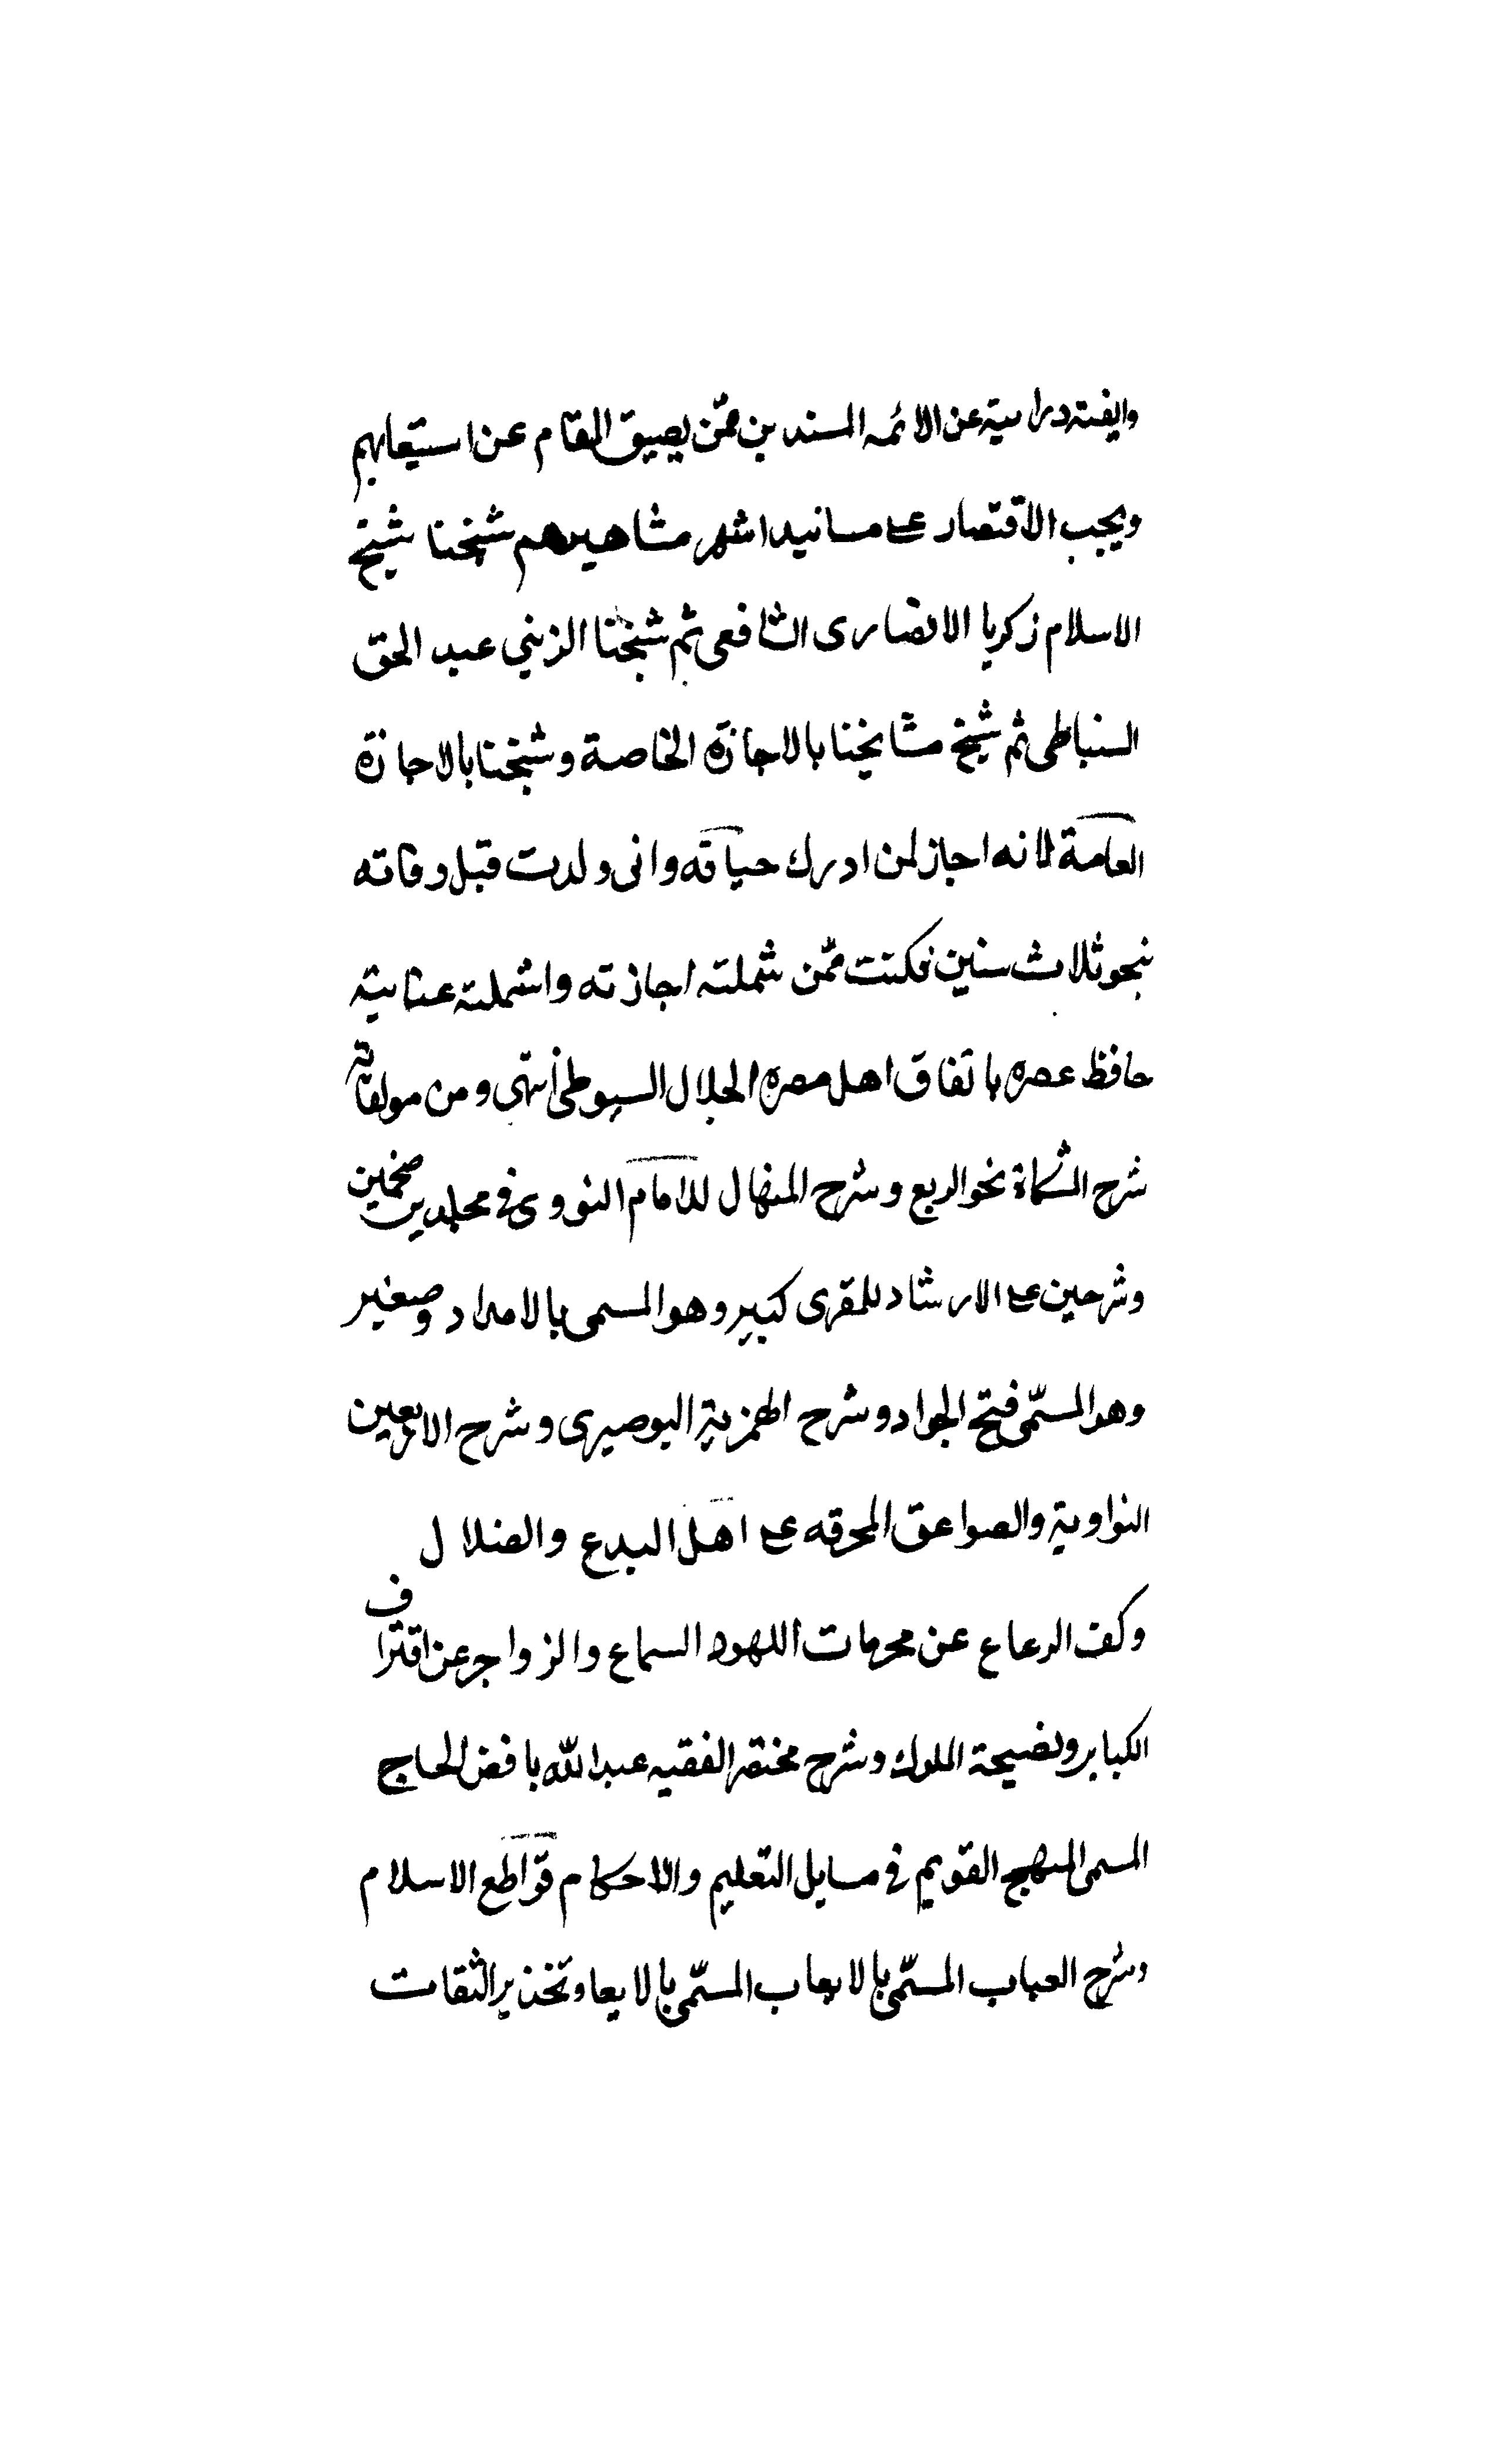 وايفته دراسية عن الائمه المسندين ممّن يضيق المقام عن استيعابهم
ويجب الاقتصار على مسانيد اشهر مشاهيرهم شيخنا شيخ
الاسلام زكريا الانصارى الشافعى ثم شيخنا الزيني عبد الحق
السنباطى ثم شيخ مشايخنا بالاجازة الخاصة وشيخنا بالاجازة
العامة لانه اجاز لمن ادرك حياته وانى ولدت قبل وفاته
بنحو ثلاث سنين فكنت ممّن شملته اجازته واشملته عناية
حافظ عصره باتفاق اهل مصره الجلال السيوطى انتهى ومن مولفاته
شرح المشكاة نحو الربع وشرح المنهال للامام النووى في مجلدين ضخمين
وشرحين على الارشاد للمقرى كبير وهو المسمى بالامداد وصغير
وهو المسمّى فتح الجواد وشرح الهمزية البوصيرى وشرح الاربعين
النواوية والصواعق المحرقه على اهل البدع والضلال
وكف الرعاع عن محرمات اللهو والسماع والزواجر عن اقتراف
الكباير ونصيحة الملوك وشرح مختصر الفقيه عبد الله بافضل الحاج
المسمى المنهج القويم في مسايل التعليم والاحكام قواطع الاسلام
وشرح العباب المسمّى بالايعاب المسمّى بالايعا وتحذير الثقات